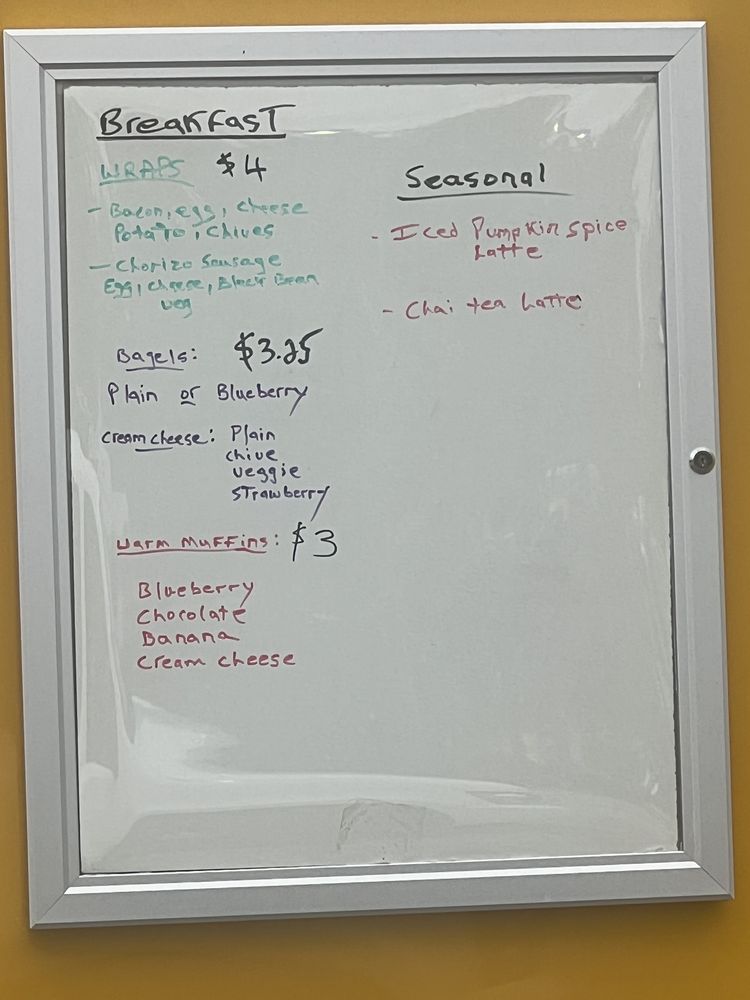 Breakfast
WRAPS $4
- Bacon, egg, cheese
Potato, chives
- Chorizo Sausage
Egg, cheese, Black Bean
veg
Bagels: $3.25
Plain or Blueberry
cream cheese: Plain
chive
veggie
strawberry
Warm Muffins: $3
Blueberry
Chocolate
Banana
Cream cheese
Seasonal
- Iced Pumpkin Spice
Latte
- Chai tea Latte